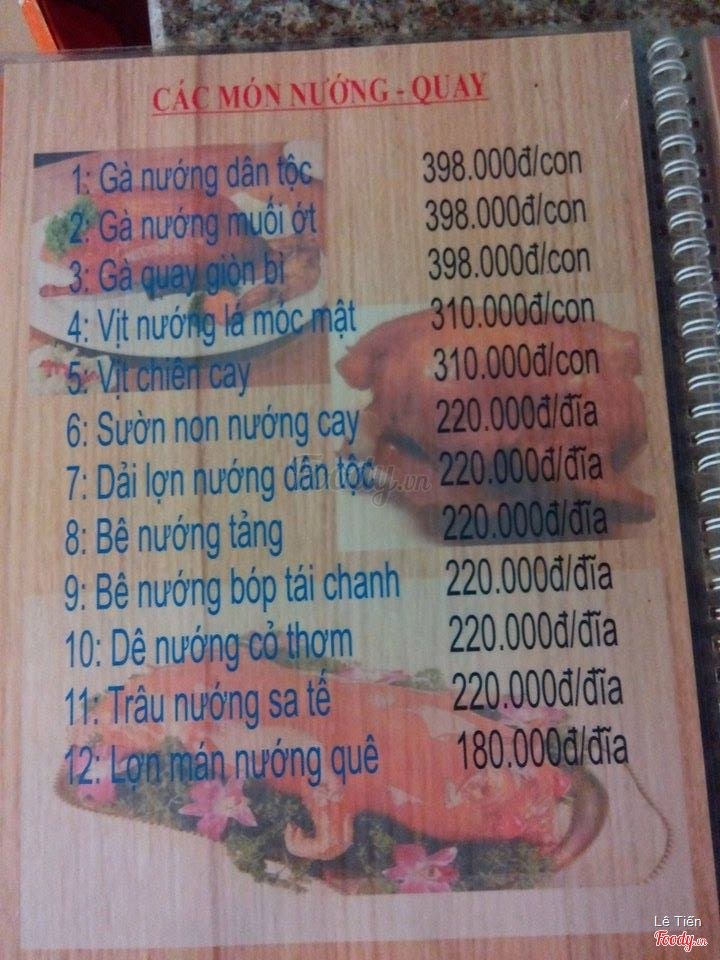 CÁC MÓN NƯỚNG - QUAY
1: Gà nướng dân tộc 398.000đ/con
2: Gà nướng muối ớt 398.000đ/con
3: Gà quay giòn bì 398.000đ/con
4: Vịt nướng lá móc mật 310.000đ/con
5: Vịt chiên cay 310.000đ/con
6: Sườn non nướng cay 220.000đ/đĩa
7: Dải lợn nướng dân tộc 220.000đ/đĩa
8: Bê nướng tảng 220.000đ/đĩa
9: Bê nướng bóp tái chanh 220.000đ/đĩa
10: Dê nướng cỏ thơm 220.000đ/đĩa
11: Trâu nướng sa tế 220.000đ/đĩa
12: Lợn mán nướng quê 180.000đ/đĩa
Foody.vn
Lê Tiến
Foody.vn